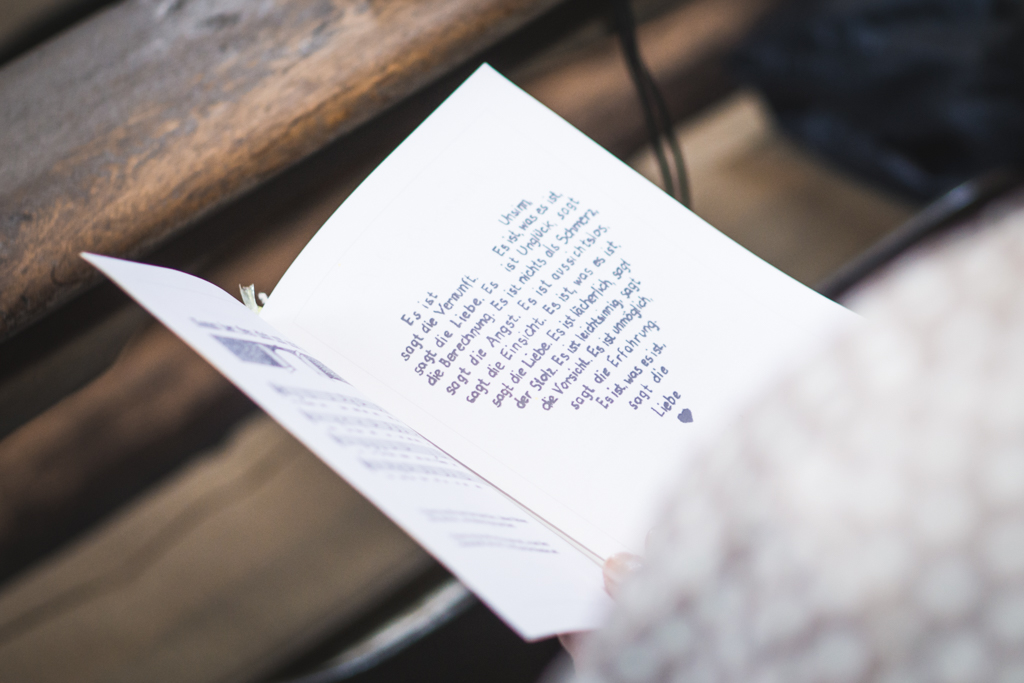 Es ist Unsinn
sagt die Vernunft. Es ist, was es ist,
sagt die Liebe. Es ist Unglück, sagt
die Berechnung. Es ist nichts als Schmerz,
sagt die Angst. Es ist aussichtslos,
sagt die Einsicht. Es ist, was es ist,
sagt die Liebe. Es ist lächerlich, sagt
der Stolz. Es ist leichtsinnig, sagt
die Vorsicht. Es ist unmöglich,
sagt die Erfahrung.
Es ist, was es ist,
sagt die
Liebe